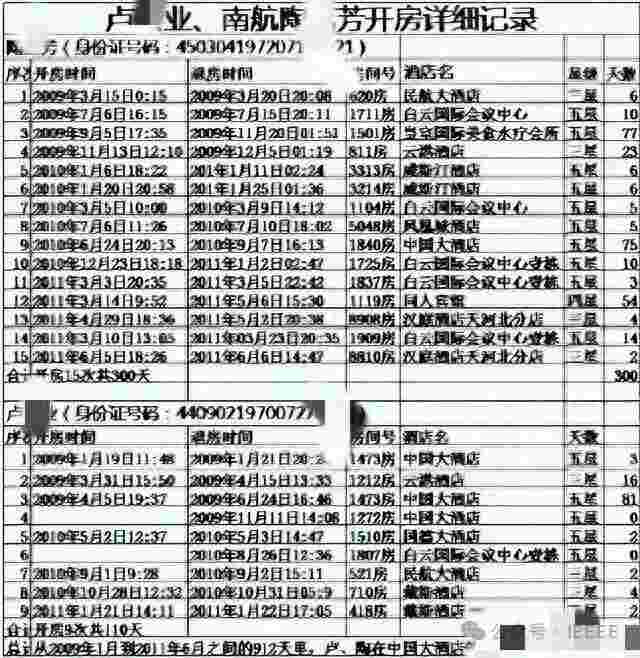 卢 业、南航陶 芳开房详细记录
芳(身份证号码:4503041972071 21)
序次 开房时间 退房时间 房间号 酒店名 星级 天数
1 2009年3月15日0:15 2009年3月20日20:08 620房 民航大酒店 三星 6
2 2009年7月6日16:15 2009年7月15日20:11 1711房 白云国际会议中心 五星 10
3 2009年9月5日17:35 2009年11月20日01:51 1501房 皇京国际美食水疗会所 五星 77
4 2009年11月13日12:10 2009年12月5日01:19 811房 云港酒店 三星 23
5 2010年1月6日18:22 201年1月11日02:24 3313房 威斯汀酒店 五星 6
6 2010年1月20日20:58 201年1月25日01:36 3214房 威斯汀酒店 五星 6
7 2010年3月5日10:00 2010年3月9日14:12 1104房 白云国际会议中心 五星 5
8 2010年7月6日11:26 2010年7月10日18:02 5048房 凤凰城酒店 五星 5
9 2010年6月24日20:13 2010年9月7日16:13 1840房 中国大酒店 五星 75
10 2010年12月23日18:18 2011年1月2日02:47 1725房 白云国际会议中心 五星 10
11 2011年3月3日20:35 2011年3月5日22:42 1837房 白云国际会议中心 五星 3
12 2011年3月14日9:52 2011年5月6日15:30 1119房 同人宾馆 四星 54
13 2011年4月29日18:36 2011年5月2日20:38 8908房 汉庭酒店天河北分店 三星 4
14 2011年3月10日13:05 2011年03月23日20:35 1909房 白云国际会议中心 五星 14
15 2011年6月5日18:26 2011年6月6日14:47 8810房 汉庭酒店天河北分店 三星 2
合计开房15次共300天 300
卢 业(身份证号码:44090219700727
序次 开房时间 退房时间 房间号 酒店名 天数
1 2009年1月19日11:48 2009年1月21日20: 1473房 中国大酒店 五星 3
2 2009年3月31日15:50 2009年4月15日13:33 1212房 云港酒店 三星 16
3 2009年4月5日19:37 2009年6月24日16:46 1473房 中国大酒店 五星 81
4 2009年11月11日14:08 1272房 中国大酒店 五星 0
5 2010年5月2日12:37 2010年5月3日14:47 1510房 酒店 五星 2
6 2010年8月26日12:36 1807房 白云国际会议中心 五星 0
7 2010年9月1日9:28 2010年9月2日15:11 521房 民航大酒店 三星 2
8 2010年10月28日12:32 2010年10月31日05:9 710房 戴斯酒店 五星 4
9 2011年1月21日14:11 2011年1月22日17:05 418房 戴斯酒店 五星 2
合计开房9次共110天
总计从2009年1月到2011年6月之间的912天里,卢、陶在中国大酒店
公众号·IEEEE